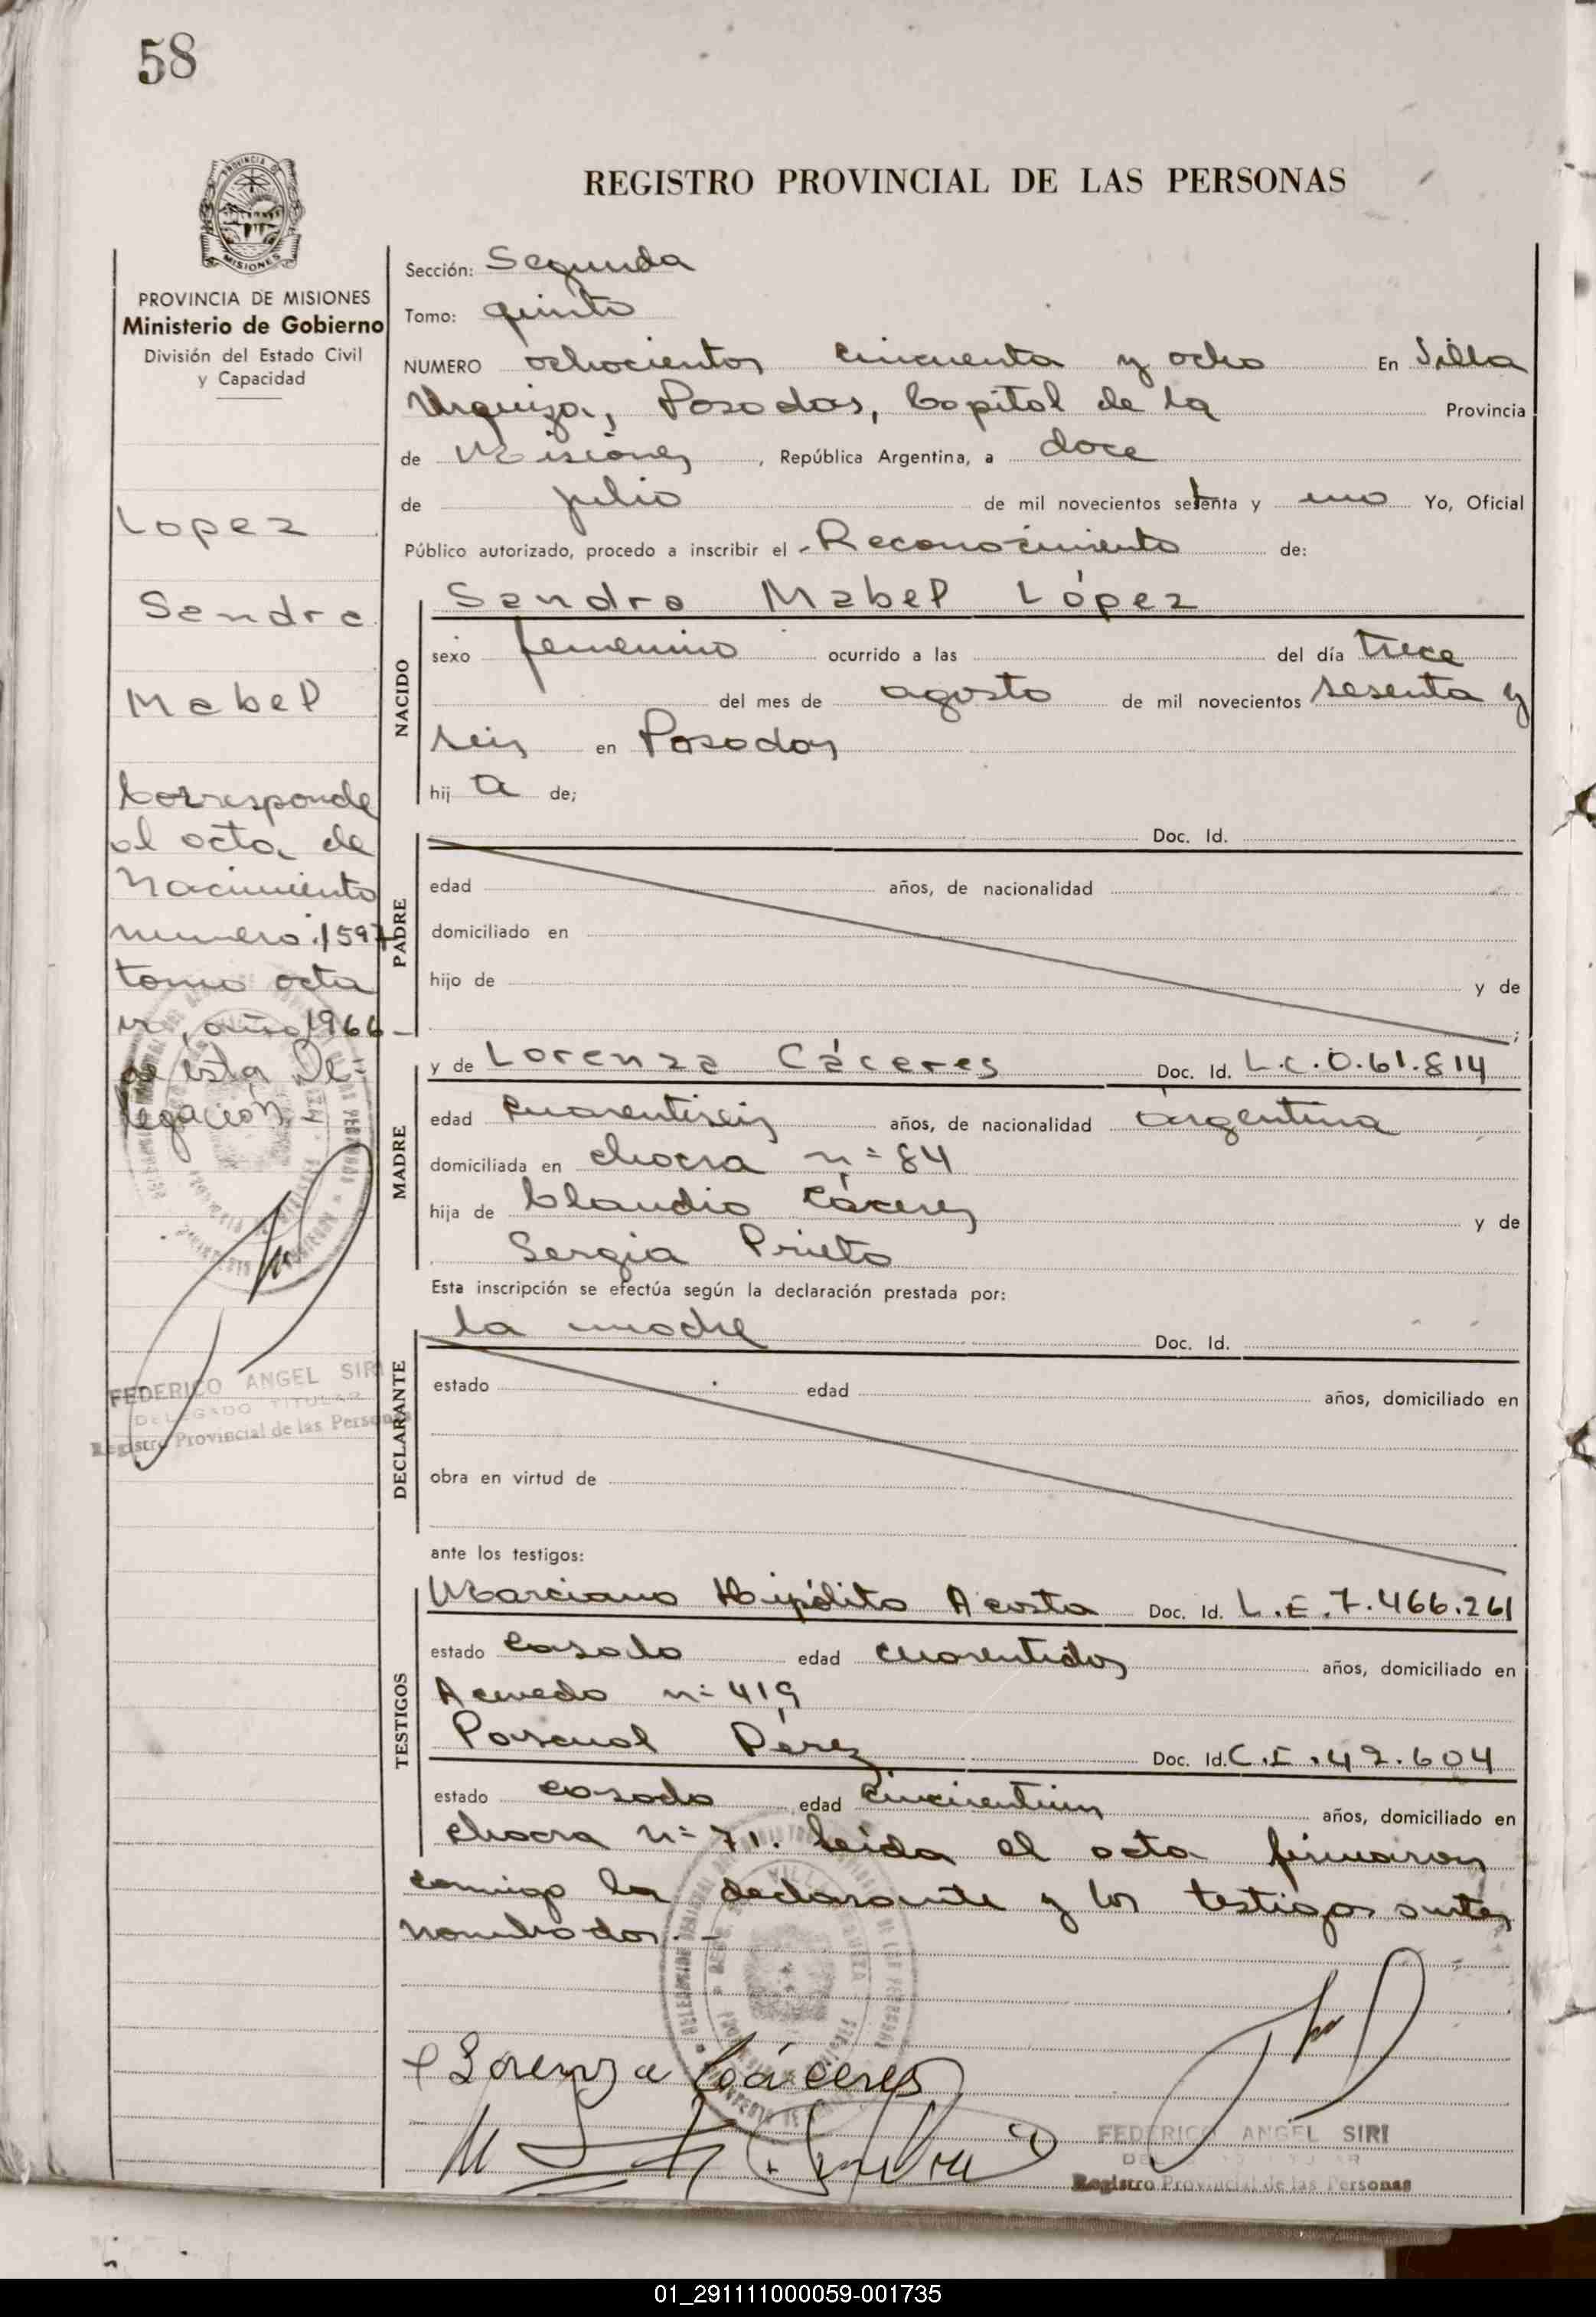 58
REGISTRO PROVINCIAL DE LAS PERSONAS
PROVINCIA DE MISIONES
Ministerio de Gobierno
División del Estado Civil
y Capacidad
Lopez
Sandra
Mabel
Corresponde
al acta de
Nacimiento
numero 1597
tomo octa
vo, año 1966
de esta De-
legación.-
FEDERICO ANGEL SIRI
DELEGADO TITULAR
Registro Provincial de las Personas
Sección: Segunda
Tomo: quinto
NUMERO ochocientos cincuenta y ocho En Villa
Urquiza, Posadas, Capital de la Provincia
de Misiones, República Argentina, a doce
de julio de mil novecientos setenta y uno Yo, Oficial
Público autorizado, procedo a inscribir el Reconocimiento de:
NACIDO
Sandra Mabel López
sexo femenino ocurrido a las del día trece
del mes de agosto de mil novecientos sesenta y
seis en Posadas
hij a de;
PADRE
Doc. Id.
edad años, de nacionalidad
domiciliado en
hijo de y de
;
MADRE
y de Lorenza Cáceres Doc. Id. L.C.0.61.814
edad cuarentiseis años, de nacionalidad argentina
domiciliada en chacra n= 84
hija de Claudio Cáceres y de
Sergia Prieto
Esta inscripción se efectúa según la declaración prestada por:
DECLARANTE
la madre Doc. Id.
estado edad años, domiciliado en
obra en virtud de
ante los testigos:
TESTIGOS
Marciano Hipólito Acosta Doc. Id. L.E.7.466.261
estado casado edad cuarentidos años, domiciliado en
Acevedo n= 419
Pascual Pérez Doc. Id. C.I.42.604
estado casado edad años, domiciliado en
chacra n= 71. Leida el acta firmaron
conmigo la declarante y los testigos antes
nombrados.-
Lorenza Cáceres
FEDERICO ANGEL SIRI
Registro Provincial de las Personas
01_291111000059-001735